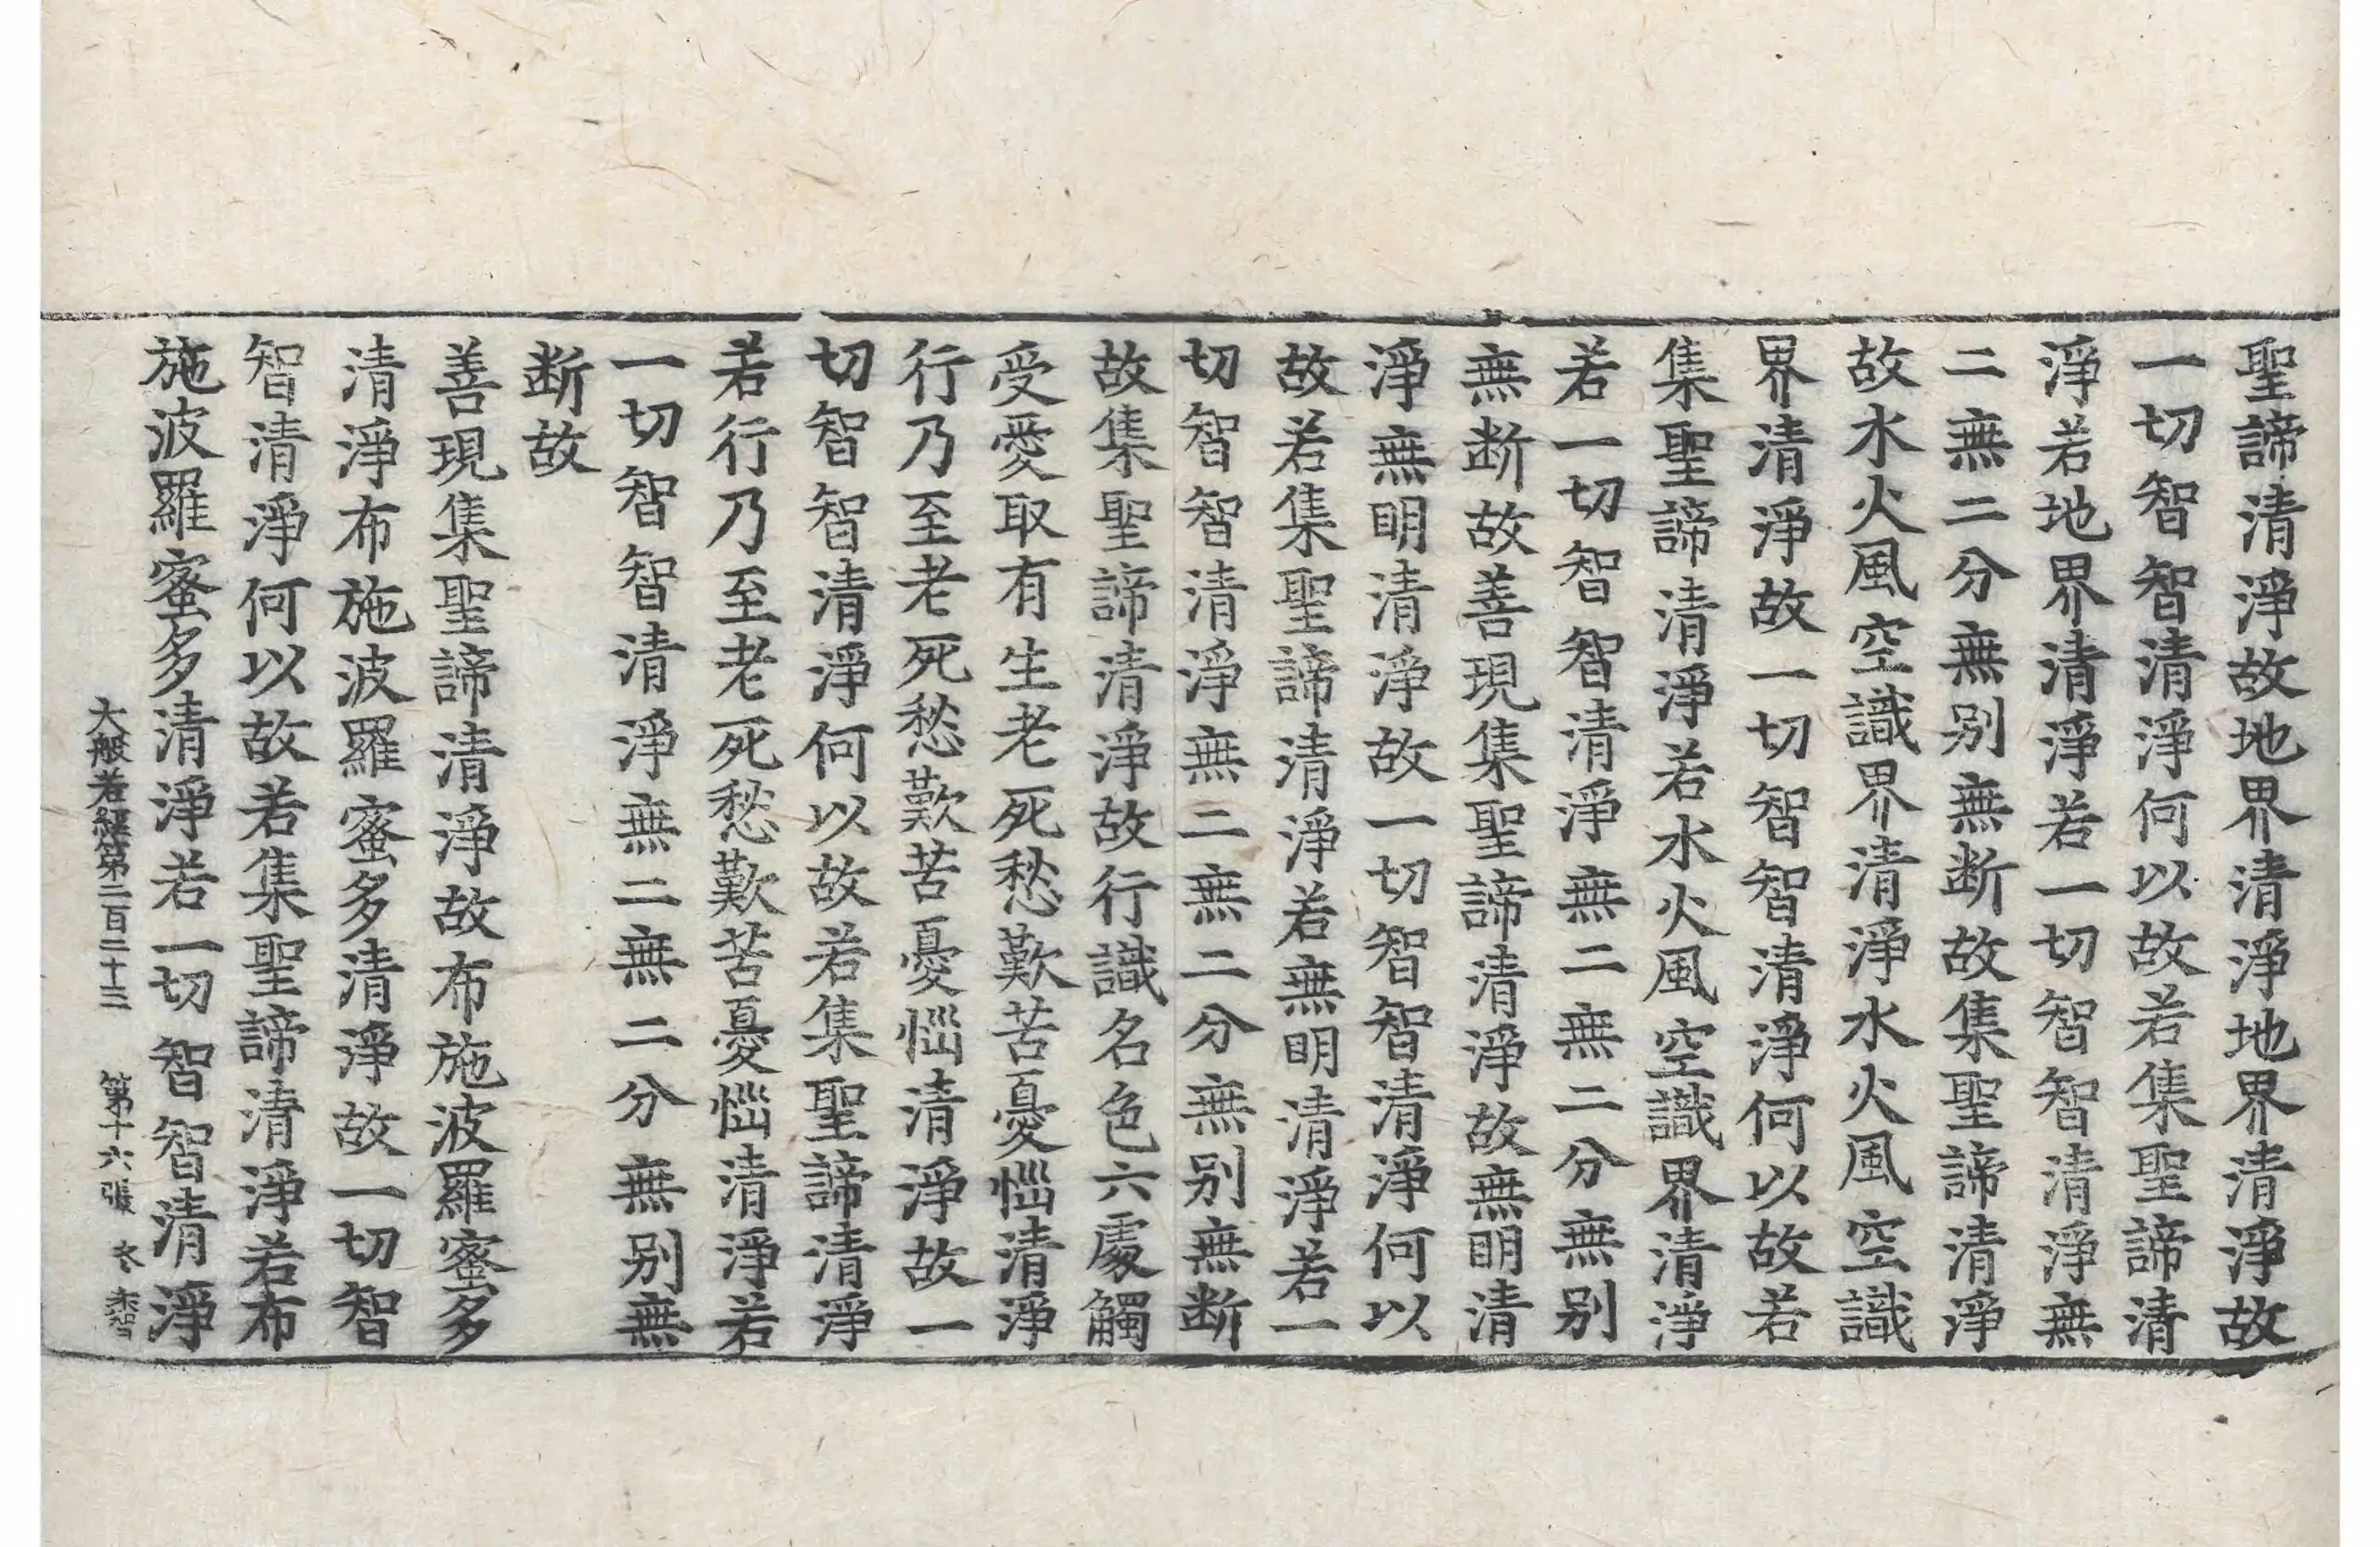 聖諦清淨故地界清淨地界清淨故
一切智智清淨何以故若集聖諦清
淨若地界清淨若一切智智清淨無
二無二分無别無断故集聖諦清淨
故水火風空識界清淨水火風空識
界清淨故一切智智清淨何以故若
集聖諦清淨若水火風空識界清淨
若一切智智清淨無二無二分無别
無断故善現集聖諦清淨故無明清
淨無明清淨故一切智智清淨何以
故若集聖諦清淨若無明清淨若一
切智智清淨無二無二分無别無断
故集聖諦清淨故行識名色六處觸
受愛取有生老死愁歎苦憂惱清淨
行乃至老死愁歎苦憂惱清淨故一
切智智清淨何以故若集聖諦清淨
若行乃至老死愁歎苦憂惱清淨若
一切智智清淨無二無二分無别無
断故
善現集聖諦清淨故布施波羅蜜多
清淨布施波羅蜜多清淨故一切智
智清淨何以故若集聖諦清淨若布
施波羅蜜多清淨若一切智智清淨
大般若經第二百二十三 第十六張